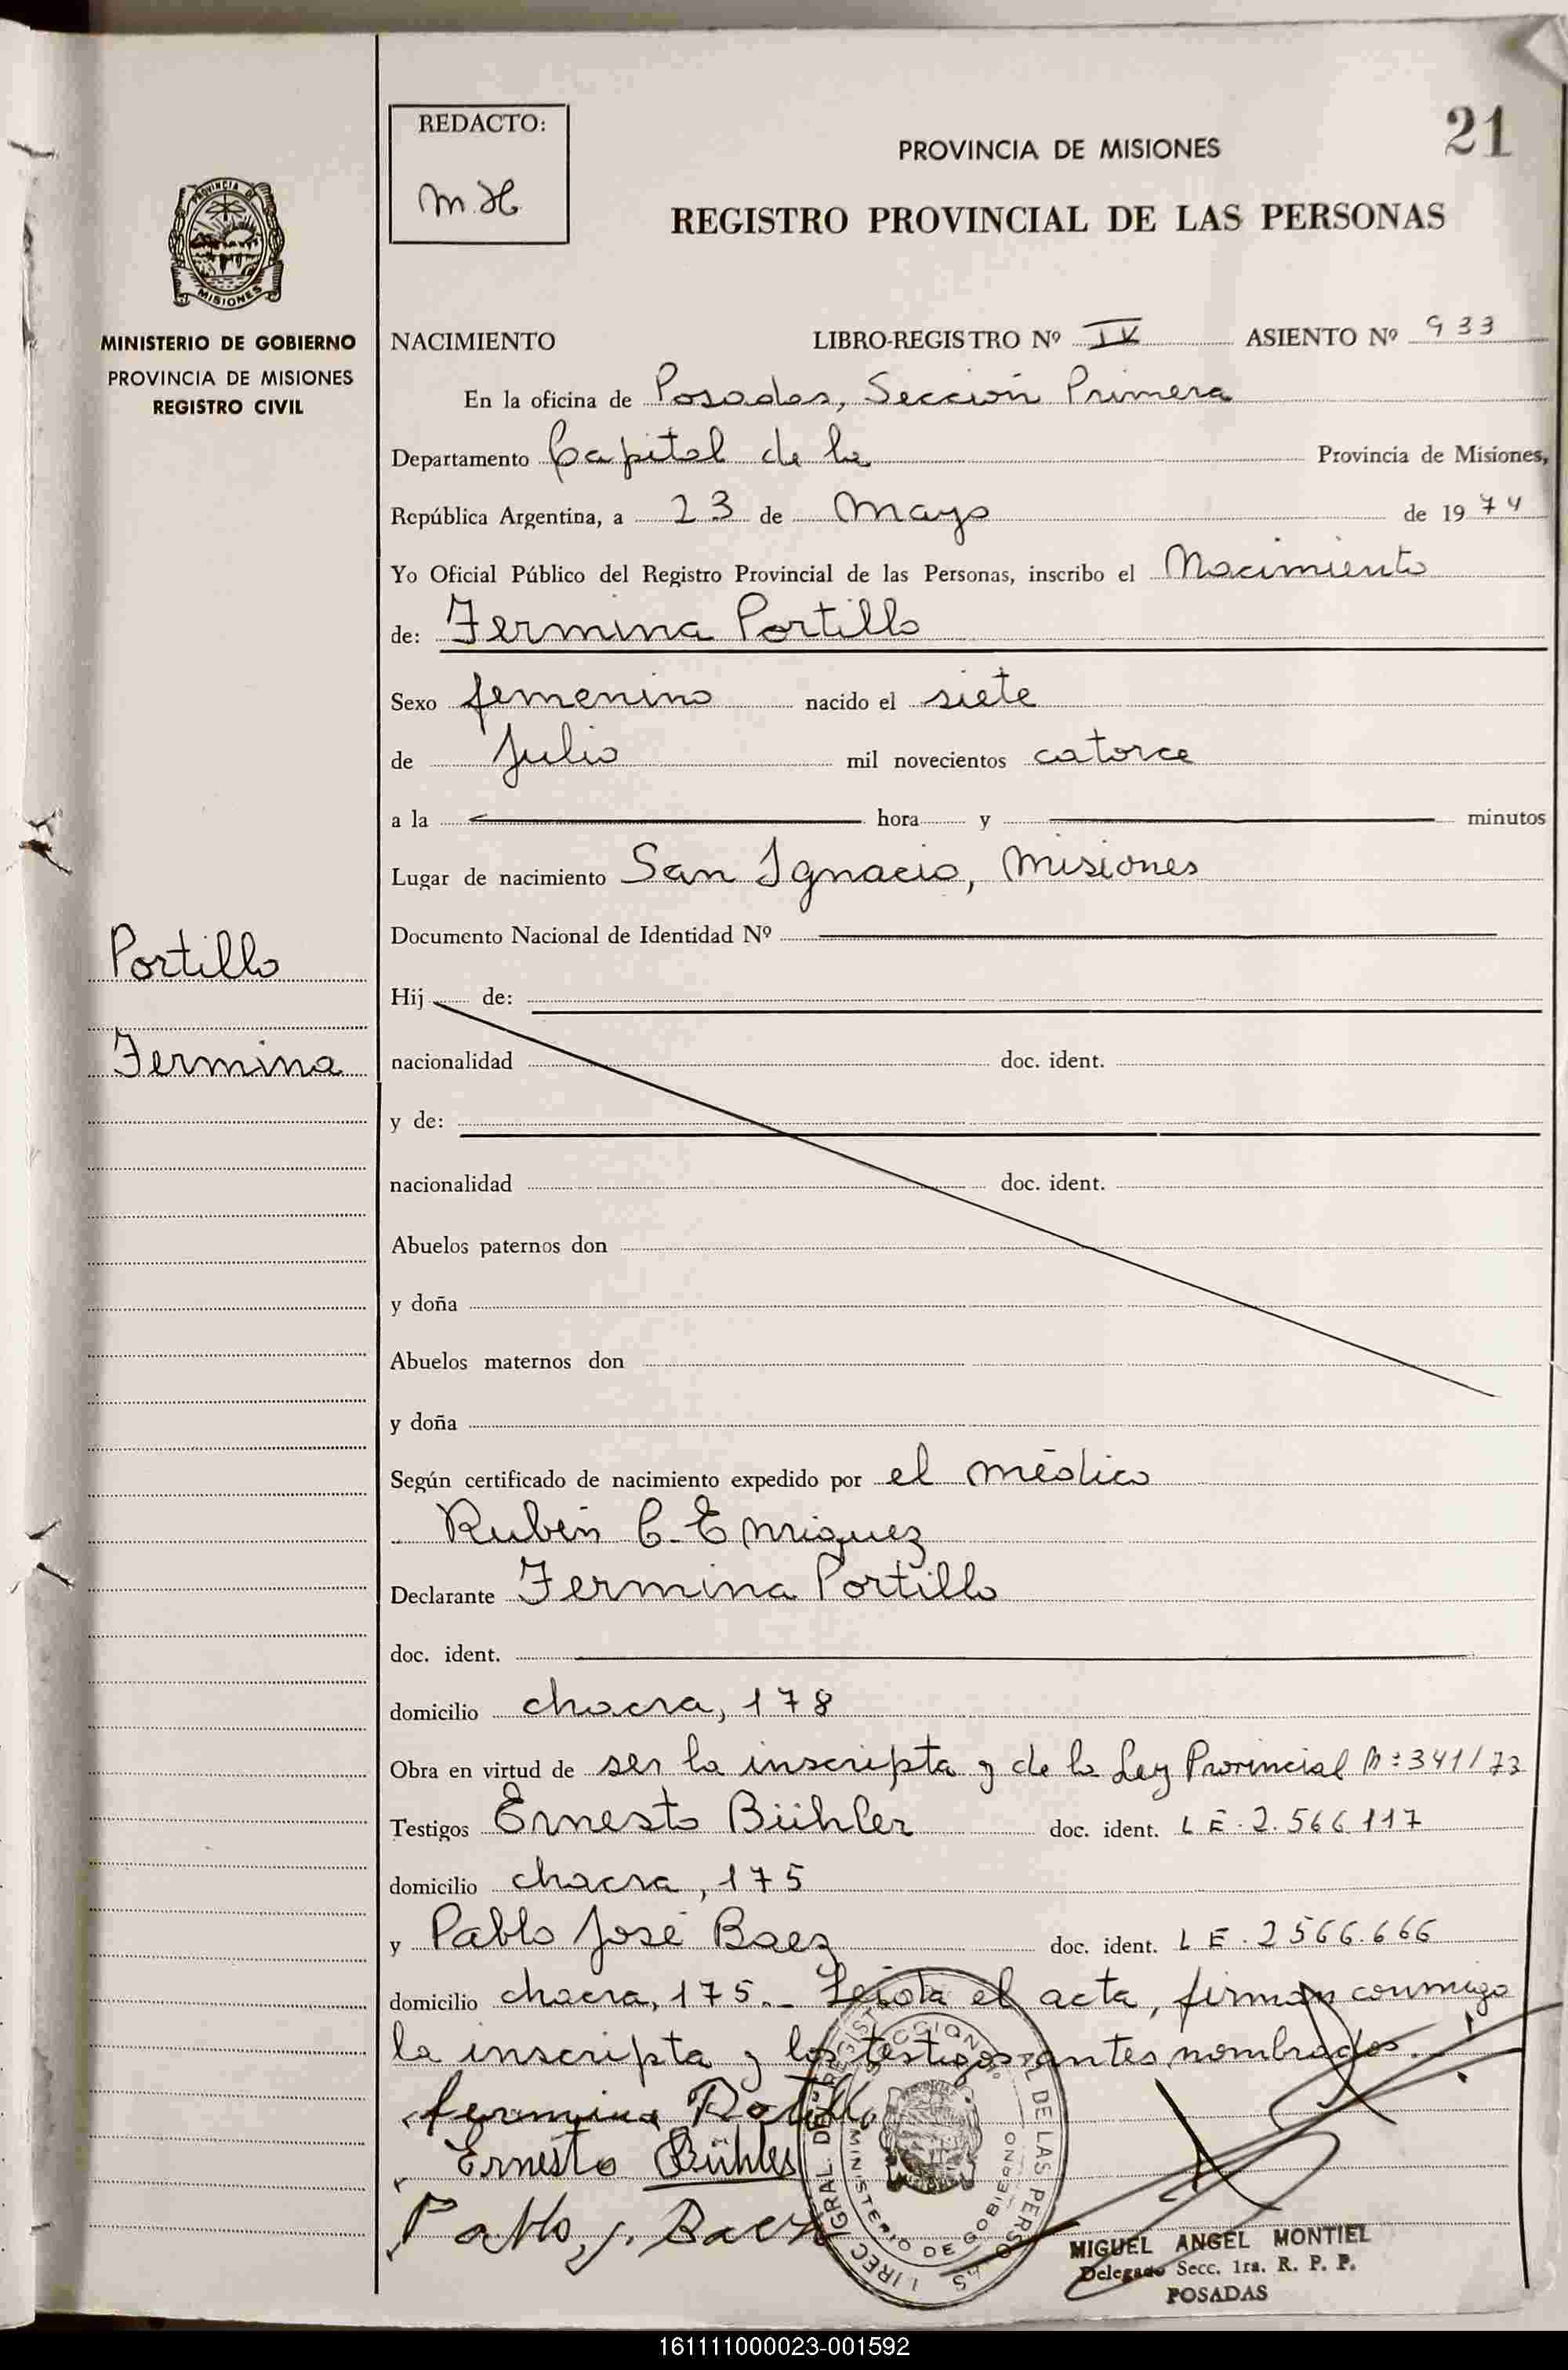 21
REDACTO:
M.H.
PROVINCIA DE MISIONES
REGISTRO PROVINCIAL DE LAS PERSONAS
PROVINCIA DE
MISIONES
MINISTERIO DE GOBIERNO
PROVINCIA DE MISIONES
REGISTRO CIVIL
NACIMIENTO LIBRO-REGISTRO Nº IV ASIENTO Nº 933
En la oficina de Posadas, Sección Primera
Departamento Capital de la Provincia de Misiones,
República Argentina, a 23 de Mayo de 1974
Yo Oficial Público del Registro Provincial de las Personas, inscribo el Nacimiento
de: Fermina Portillo
Sexo femenino nacido el siete
de Julio mil novecientos catorce
a la hora y minutos
Lugar de nacimiento San Ignacio, Misiones
Documento Nacional de Identidad Nº
Portillo
Fermina
Hij de:
nacionalidad doc. ident.
y de:
nacionalidad doc. ident.
Abuelos paternos don
y doña
Abuelos maternos don
y doña
Según certificado de nacimiento expedido por el médico
Rubén C. Enriquez
Declarante Fermina Portillo
doc. ident.
domicilio chacra, 178
Obra en virtud de ser la inscripta y de la Ley Provincial Nº 341/73
Testigos Ernesto Bühler doc. ident. L E. 2.566.117
domicilio chacra, 175
y Pablo José Baez doc. ident. L E. 2566.666
domicilio chacra, 175._ Leída el acta, firman conmigo
la inscripta y los testigos antes nombrados._
fermina Portillo
Ernesto Bühler
Pablo J. Baez
MINISTERIO DE GOBIERNO
MIGUEL ANGEL MONTIEL
Delegado Secc. 1ra. R. P. P.
POSADAS
161111000023-001592